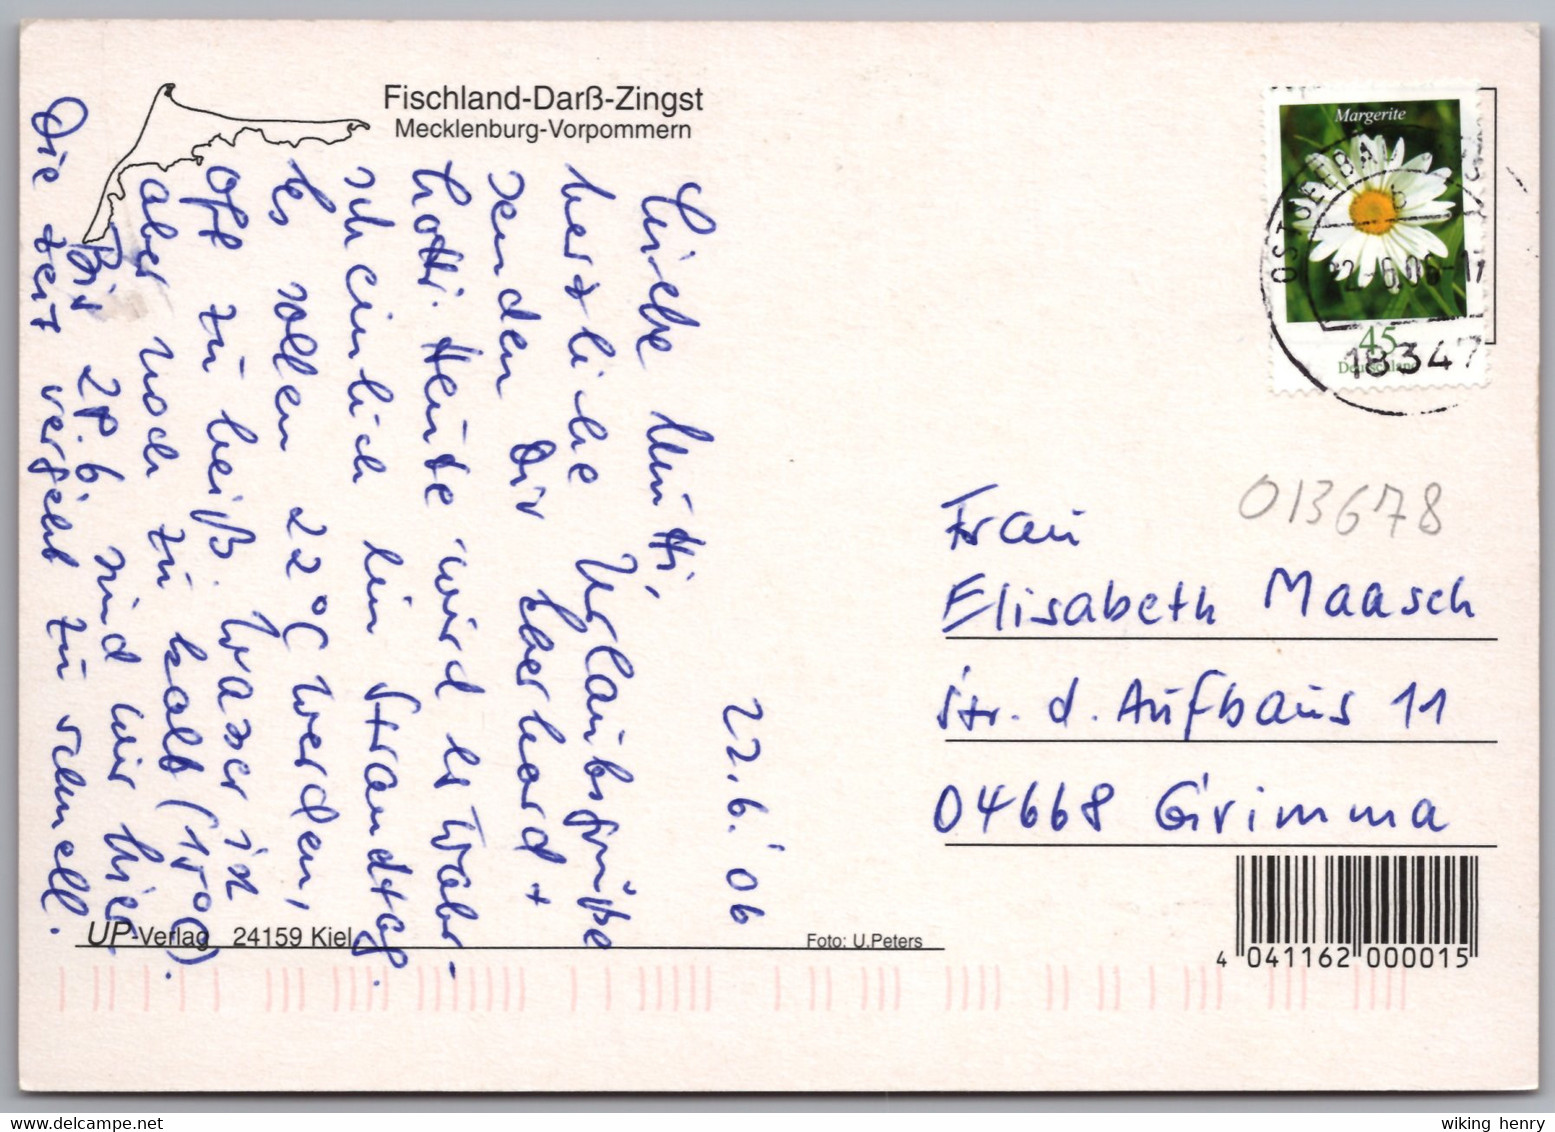 Fischland-Darß-Zingst
Mecklenburg-Vorpommern
22.6.'06
Liebe Mutti,
herzliche Urlaubsgrüße
senden Dir Eberhard +
Lotti. Heute wird es wahr-
scheinlich ein Strandtag.
Es sollen 22°C werden,
oft zu heiß. Wasser ist
aber noch zu kalt (15°C).
Bis 28.6. sind wir hier.
Die Zeit vergeht zu schnell.
UP-Verlag 24159 Kiel
Foto: U.Peters
Margerite
45
Deutschland
OSTSEEBAD
22.-6.06-17
18347
013678
Frau
Elisabeth Maasch
Str. d. Aufbaus 11
04668 Grimma
4 041162 000015
wiking henry